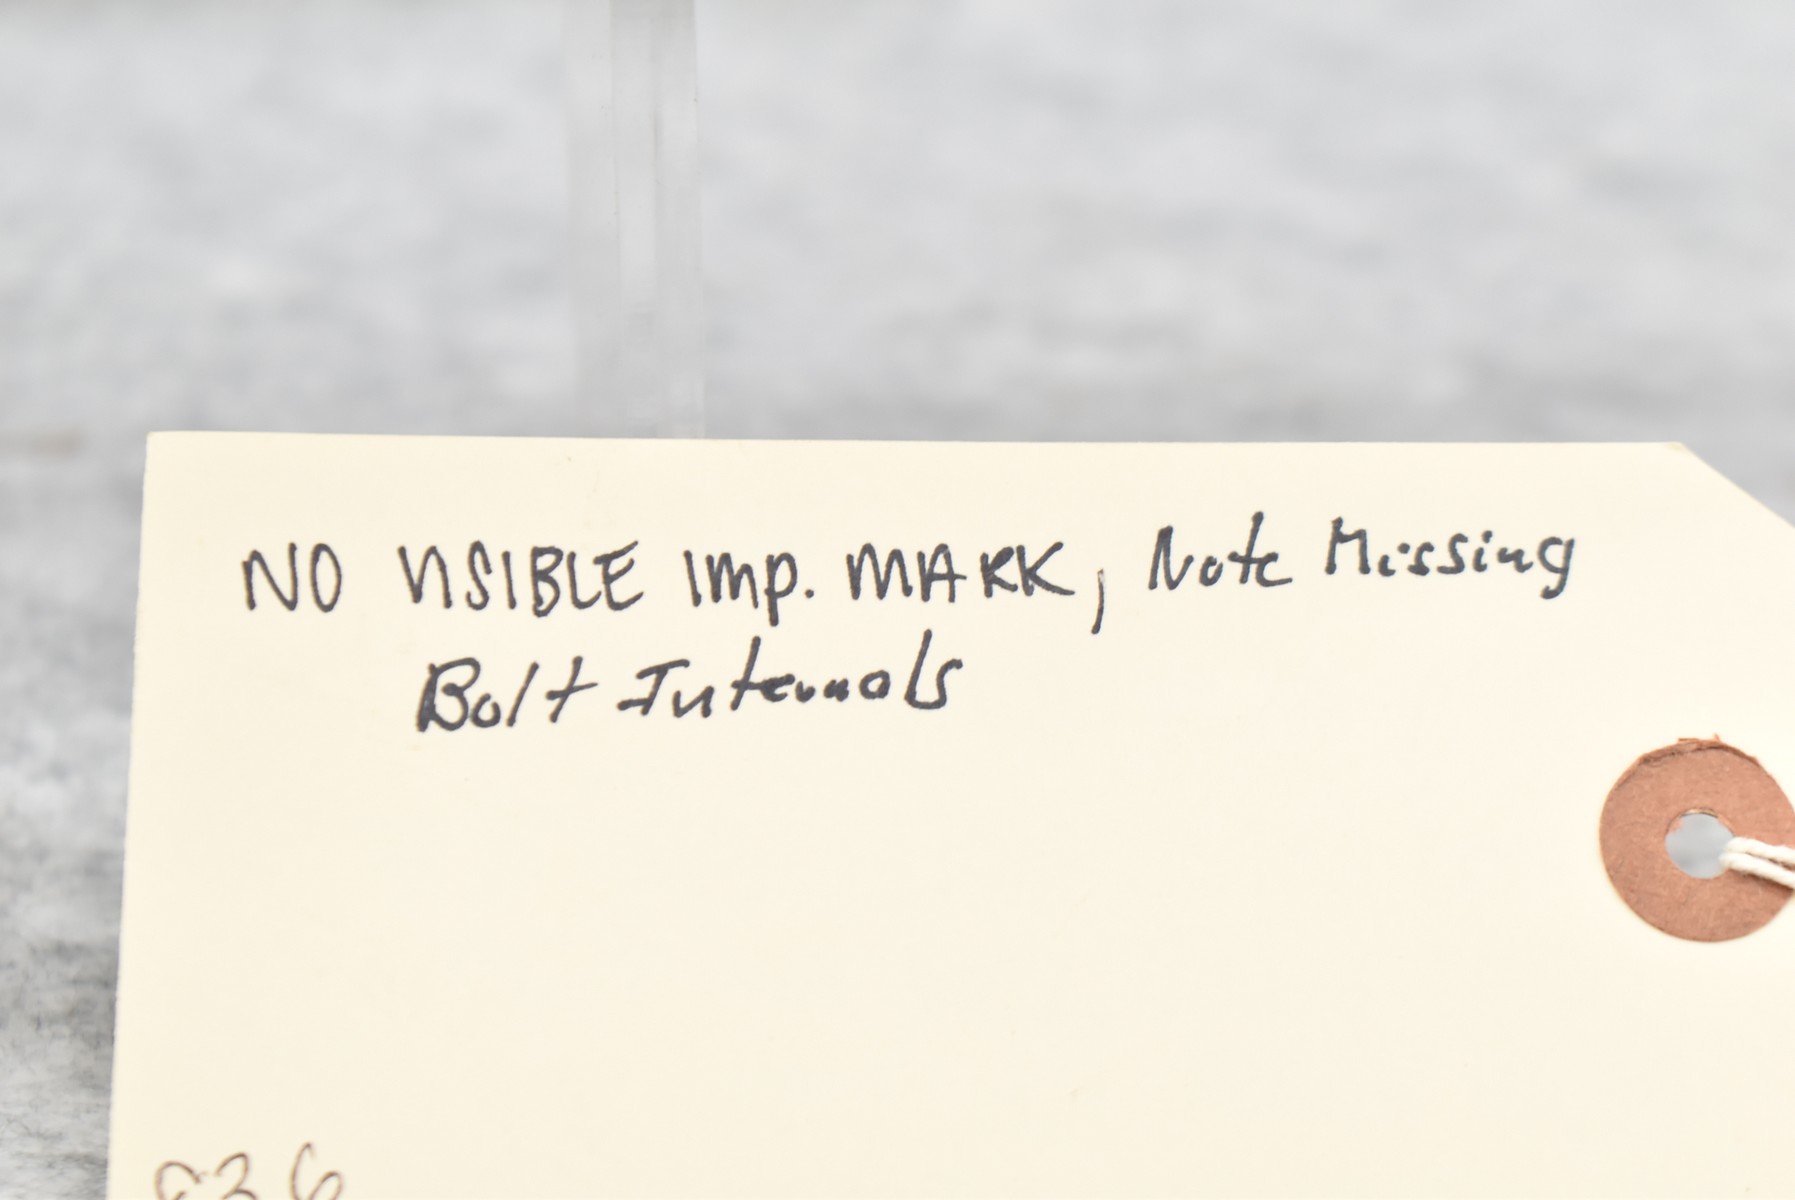 NO VISIBLE Imp. MARK, Note Missing
Bolt Internals